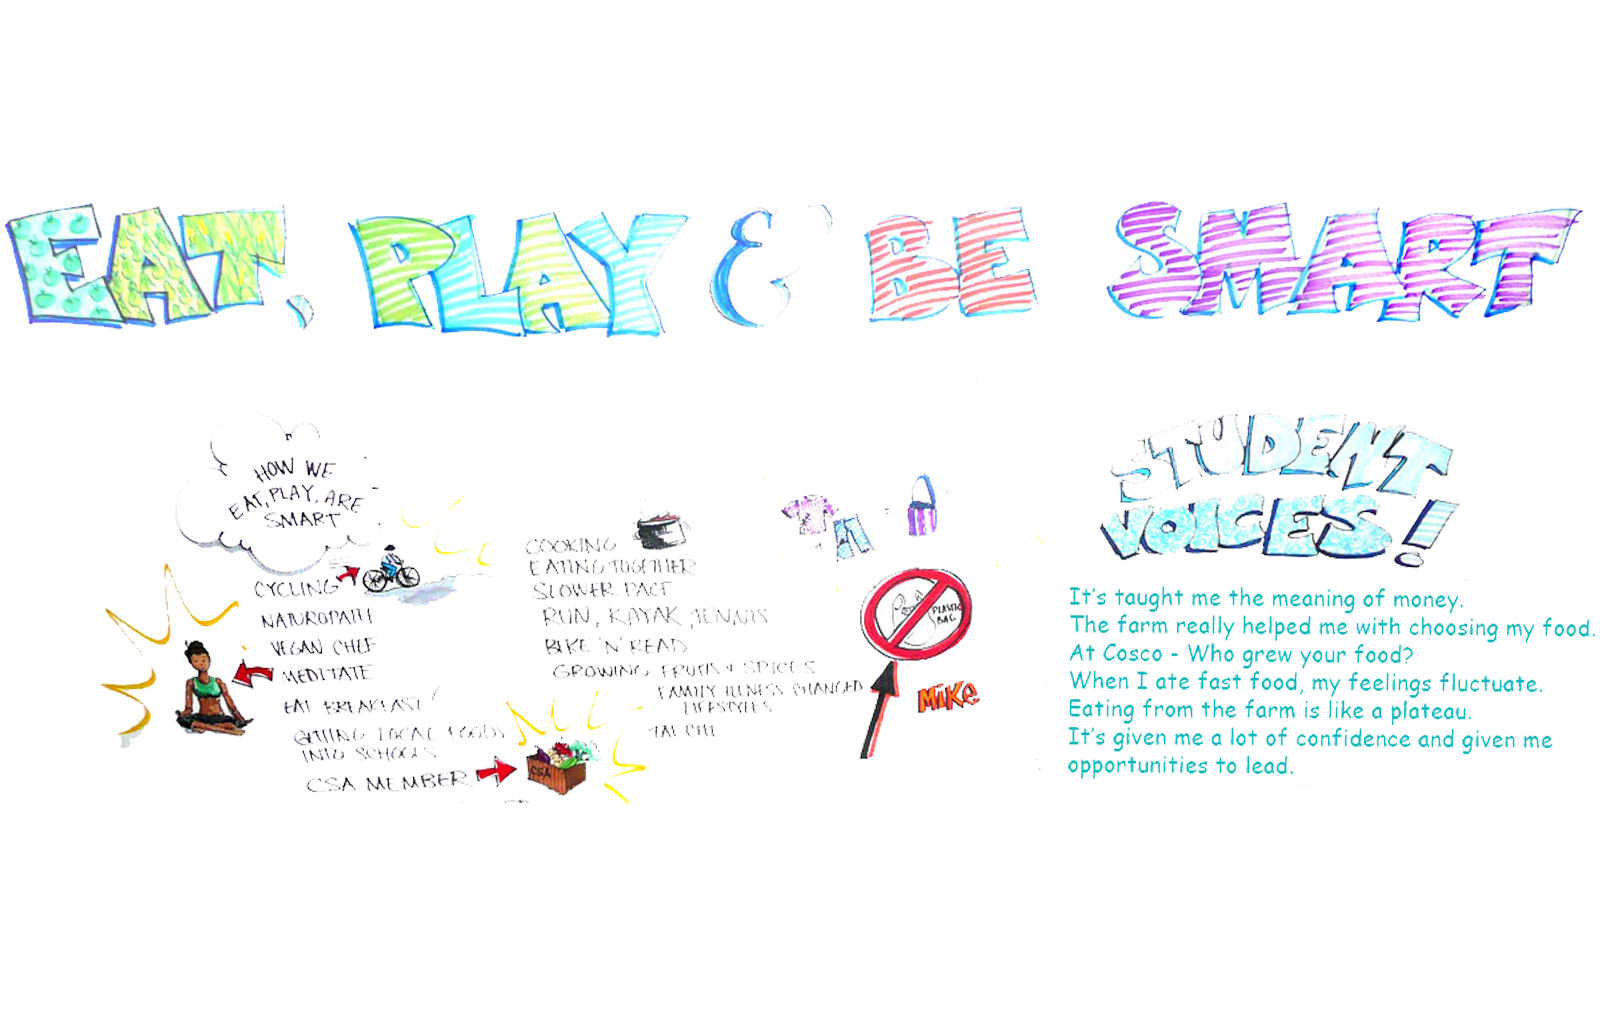 EAT, PLAY & BE SMART
HOW WE
EAT, PLAY, ARE
SMART
CYCLING
NATUROPATH
VEGAN CHEF
MEDITATE
EAT BREAKFAST!
GETTING LOCAL FOODS
INTO SCHOOLS
CSA MEMBER
CSA
COOKING
EATING TOGETHER
SLOWER PACE
RUN, KAYAK, TENNIS
BIKE 'N' READ
GROWING FRUITS & SPICES
FAMILY ILLNESS CHANGED
LIFESTYLES
TAI CHI
PLASTIC
BAG
MIKE
STUDENT
VOICES!
It's taught me the meaning of money.
The farm really helped me with choosing my food.
At Cosco - Who grew your food?
When I ate fast food, my feelings fluctuate.
Eating from the farm is like a plateau.
It's given me a lot of confidence and given me
opportunities to lead.